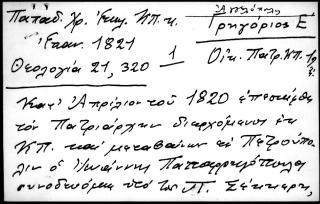 Παπαδ. Χρ. Ἐκκλ. Κ/Π. κ.
Γρηγόριος Ε
Ἐπαν. 1821
Θεολογία 21, 320 — 1
Οἰκ. Πατρ. Κ/Π. 19
Κατ' Ἀπρίλιον τοῦ 1820 ἐπεσκέφθη
τὸν Πατριάρχην διερχόμενος ἐκ
Κ/Π. καὶ μεταβαίνων εἰς Πετρούπο-
λιν ὁ Ἰωάννης Παπαρρηγόπουλος
συνοδευόμενος ὑπὸ τοῦ Π. Σέκκερη,